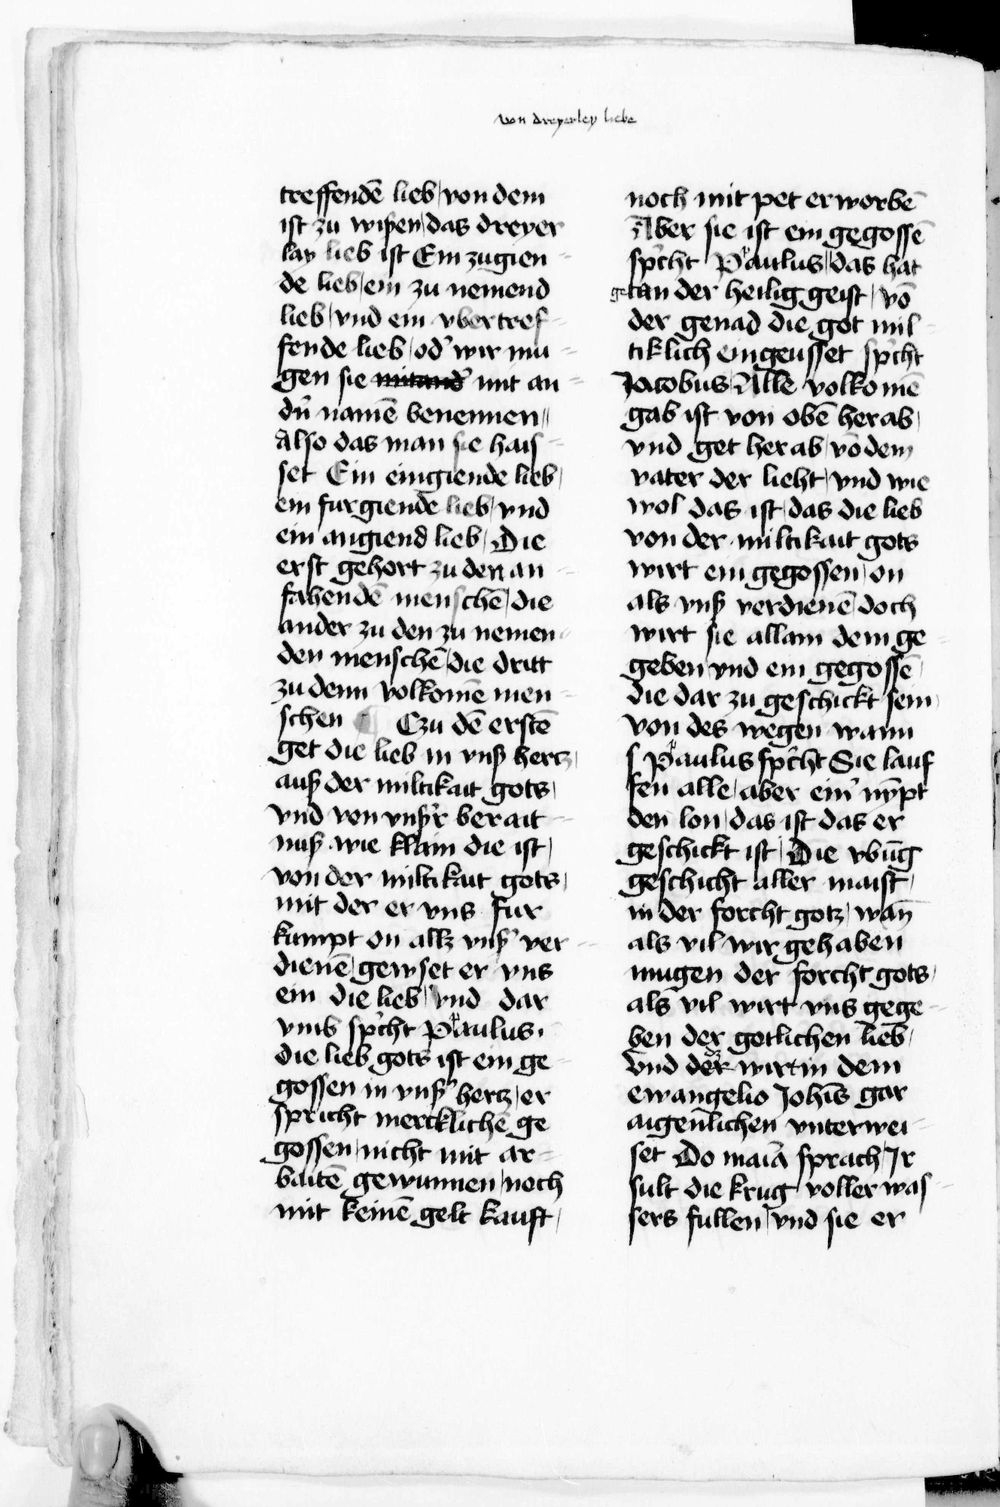 von dreyerley liebe
treffendē lieb / von dem
ist zu wißen / das dreyer
lay lieb ist Ein zugien-
de lieb / ein zu nemend
lieb / vnd ein vbertref-
fende lieb / od' wir mu-
gen sie mitand' mit an-
dn̄ namē benennen //
also das man sie hais-
set Ein eingiende lieb /
ein furgiende lieb / vnd
ein angiend lieb / Die
erst gehort zu den an-
fahendē menschē / die
ander zu den zu nemen-
den menschē / die dritt
zu denn volkomē men-
schen ¶ Czu dē erstē
get die lieb in vnß hertz /
auß der miltikait gots /
vnd von vnß'r berait-
nuß wie klain die ist /
von der miltikait gots /
mit der er vns fur
kumpt on allz vnß' ver-
dienē / gewset er vns
ein die lieb / vnd dar
vmb sp'cht Paulus.
die lieb gots ist ein ge-
gossen in vnß' hertz / er
spricht mercklichē ge
gossen / nicht mit ar-
baitē gewunnen / noch
mit keinē gelt kauft /
noch mit pet erworbē
Aber sie ist ein gegossē
sp'cht Paulus / das hat
getan der heilig geist / vō
der genad die got mil-
tiklich eingeusset sp'cht
Jacobus / Alle volkomē
gab ist von obē herab /
vnd get herab / vō dem
vater der liecht / vnd wie
wol das ist / das die lieb
von der miltikait gots
wirt ein gegossen / on
als vnß verdienē / doch
wirt sie allain dem ge-
geben vnd ein gegossē /
die dar zu geschickt sein /
von des wegen wann
s Paulus sp'cht Sie lauf
fen alle / aber ein' nȳpt
den lon / das ist das er
geschickt ist / Die vbūg
geschicht aller maist /
in der forcht gotz / wan̄
als vil wir gehaben
mugen der forcht gots /
als vil wirt vns gege-
ben der gotlichen lieb /
vnd der wirt in dem
ewangelio Joh̄is gar
aigenlichen vnterwei-
set Do maīa sprach / Ir
sult die krug voller was-
sers fullen / vnd sie er